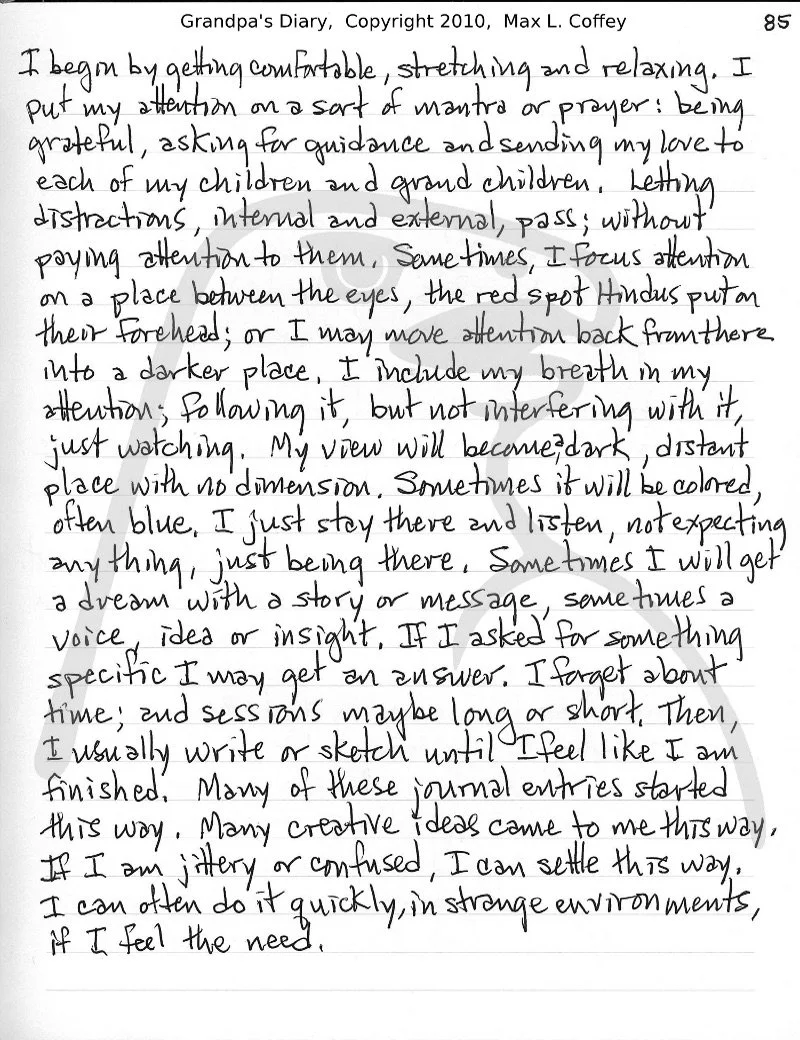 Grandpa's Diary, Copyright 2010, Max L. Coffey
85
I begin by getting comfortable, stretching and relaxing. I
put my attention on a sort of mantra or prayer: being
grateful, asking for guidance and sending my love to
each of my children and grand children. Letting
distractions, internal and external, pass; without
paying attention to them. Sometimes, I focus attention
on a place between the eyes, the red spot Hindus put on
their forehead; or I may move attention back from there
into a darker place. I include my breath in my
attention; following it, but not interfering with it,
just watching. My view will become a dark, distant
place with no dimension. Sometimes it will be colored,
often blue. I just stay there and listen, not expecting
any thing, just being there. Sometimes I will get
a dream with a story or message, sometimes a
voice, idea or insight. If I asked for something
specific I may get an answer. I forget about
time; and sessions maybe long or short. Then,
I usually write or sketch until I feel like I am
finished. Many of these journal entries started
this way. Many creative ideas came to me this way.
If I am jittery or confused, I can settle this way.
I can often do it quickly, in strange environments,
if I feel the need.